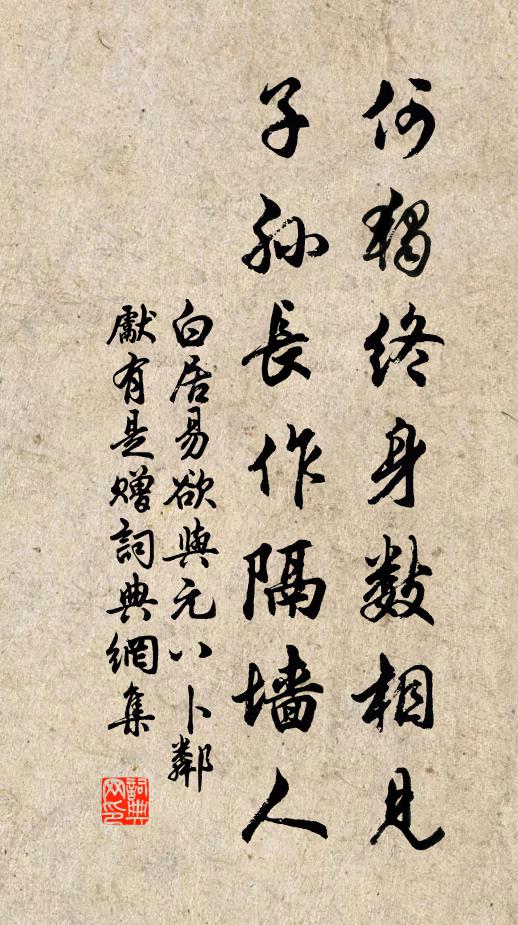 何獨終身數相見
子孫長作隔墻人
白居易欲與元八卜鄰
獻有是贈詞典網集
詞典网印